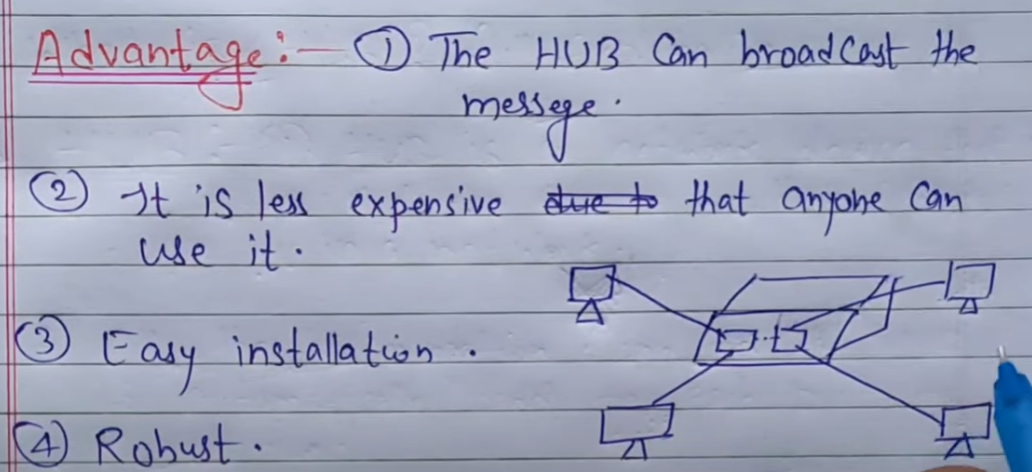 Advantage:- ① The HUB Can broadCast the
messege.
② It is less expensive due to that anyone Can
use it.
③ Easy installation.
④ Robust.